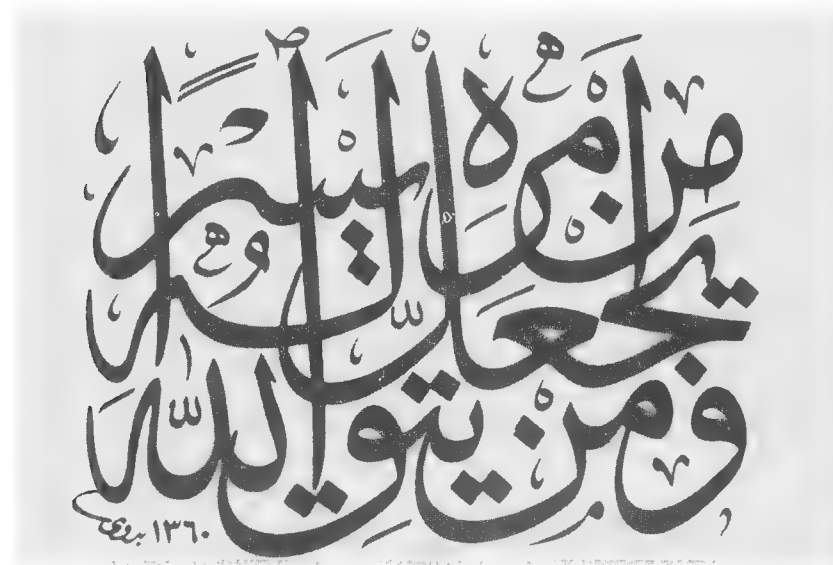 وَمَنْ يَتَّقِ اللّٰهَ
يَجْعَلْ لَهُ
مِنْ أَمْرِهِ يُسْرًا
١٣٦٠ بدوي